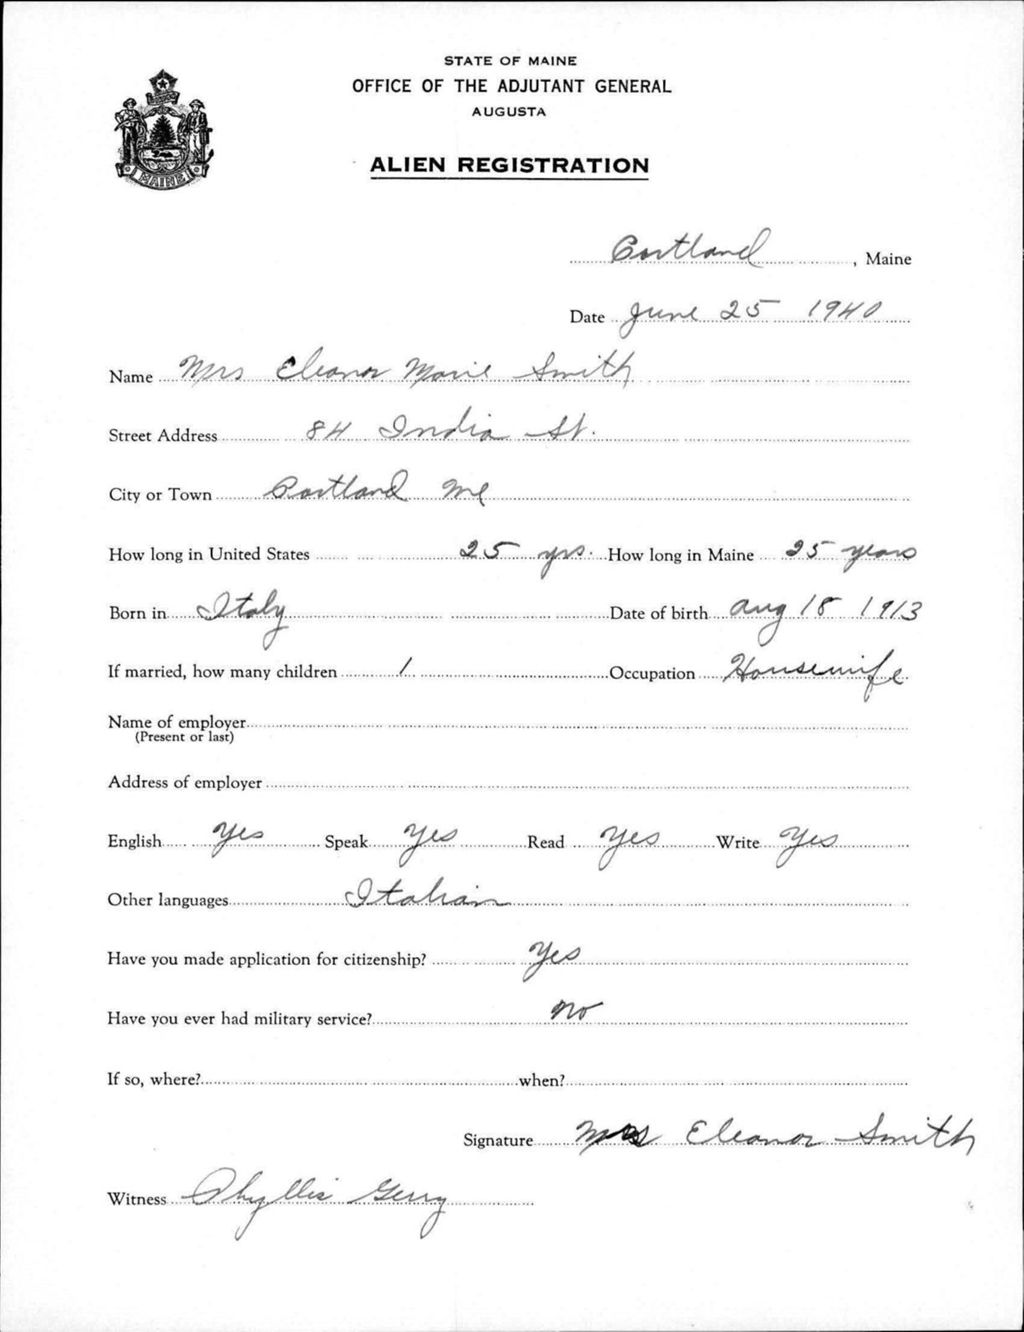 STATE OF MAINE
OFFICE OF THE ADJUTANT GENERAL
AUGUSTA
ALIEN REGISTRATION
MAINE
Portland, Maine
Date June 25 1940
Name Mrs Eleanor Marie Smith
Street Address 84 India St.
City or Town Portland Me
How long in United States 25 yrs. How long in Maine 25 years
Born in Italy Date of birth Aug 18 1913
If married, how many children 1 Occupation Housewife
Name of employer
(Present or last)
Address of employer
English Yes Speak Yes Read Yes Write Yes
Other languages Italian
Have you made application for citizenship? Yes
Have you ever had military service? no
If so, where? when?
Signature Mrs Eleanor Smith
Witness Phyllis Gerry